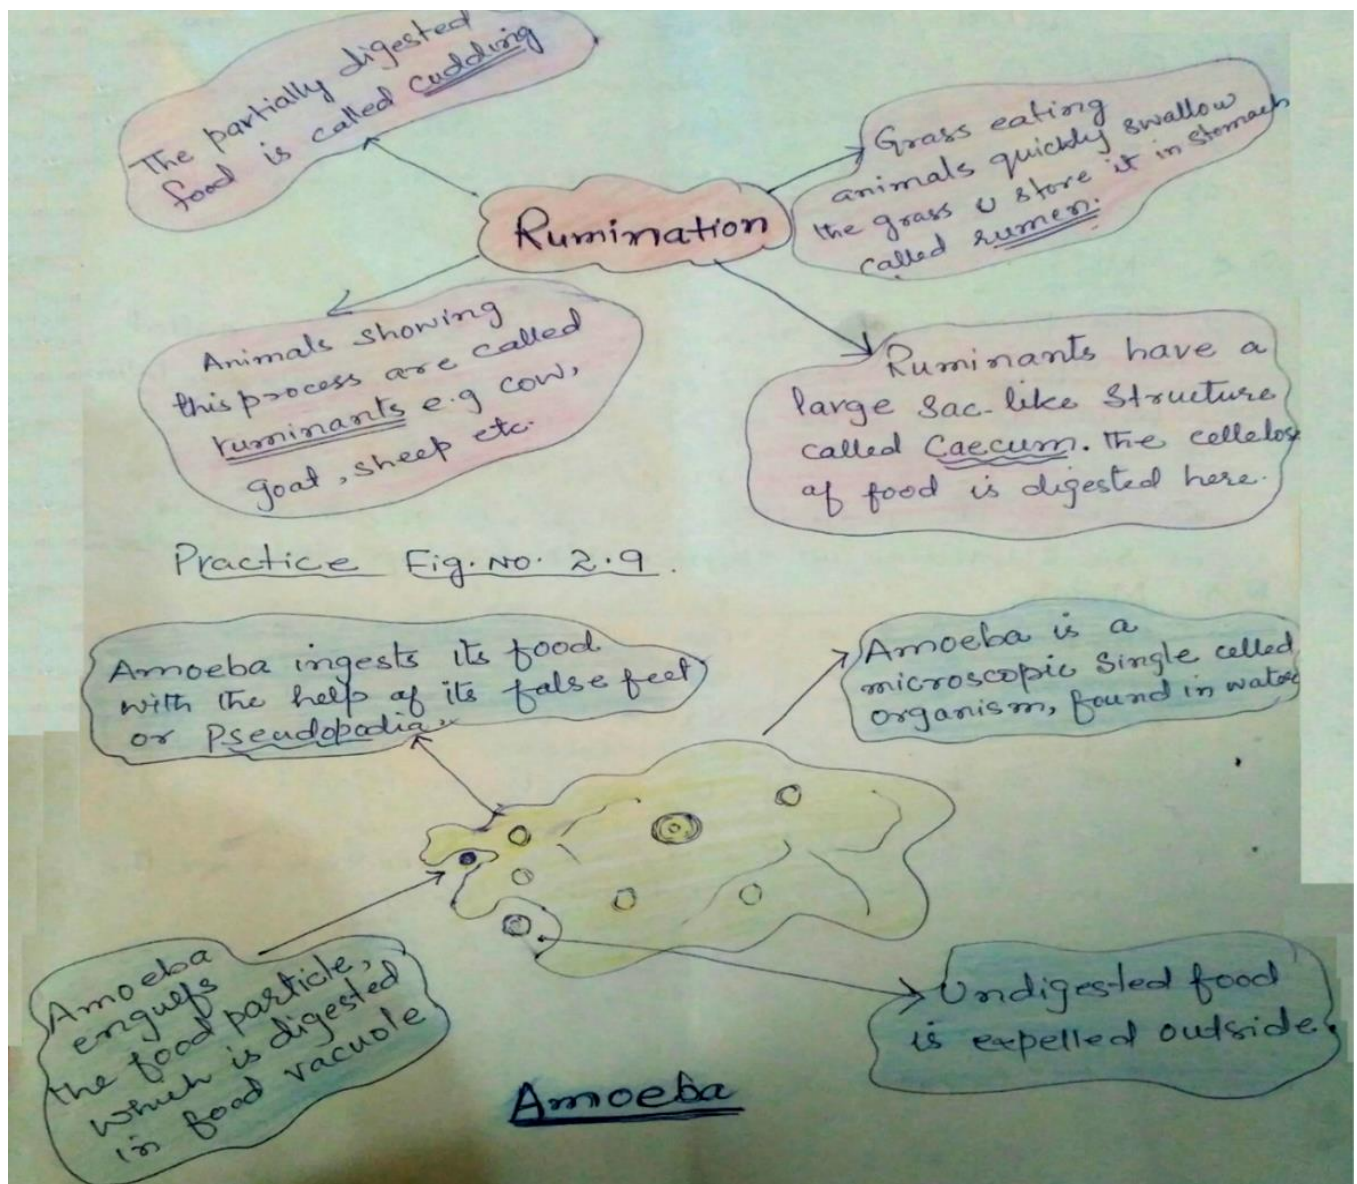 The partially digested
food is called cudding
Grass eating
animals quickly swallow
the grass & store it in stomach
called rumen.
Rumination
Animals showing
this process are called
ruminants e.g cow,
goat, sheep etc.
Ruminants have a
large Sac-like Structure
called Caecum. The cellelos
of food is digested here.
Practice Fig. No. 2.9.
Amoeba ingests its food
with the help of its false feet
or Pseudopodia
Amoeba is a
microscopic Single celled
organism, found in water
Amoeba
engulfs
the food particle,
which is digested
in food vacuole
Undigested food
is expelled outside.
Amoeba